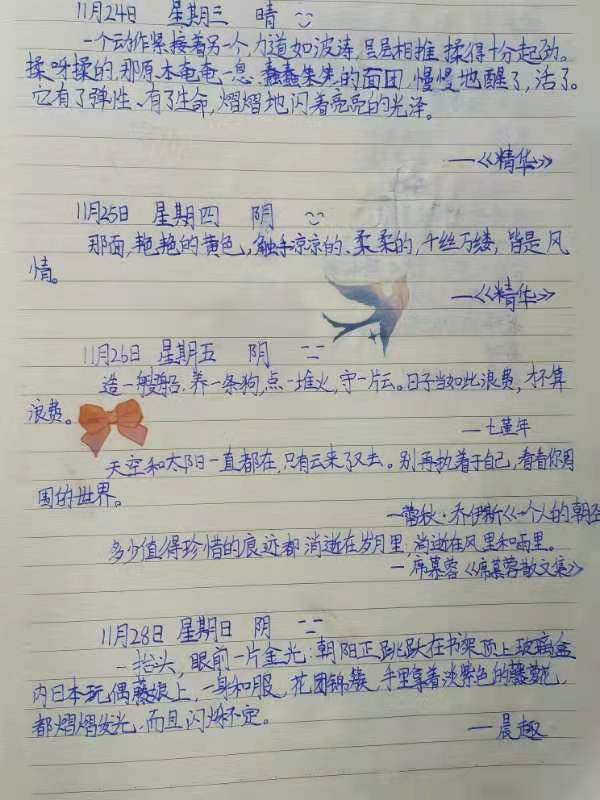 11月24日 星期三 晴
一个动作紧接着另一个,力道如波涛,层层相推,揉得十分起劲。
揉呀揉的,那原本奄奄一息、蠢蠢失失的面团,慢慢地醒了,活了。
它有了弹性、有了生命,熠熠地闪着亮亮的光泽。
——《精华》
11月25日 星期四 阴
那面,艳艳的黄色,触手凉凉的、柔柔的,千丝万缕,皆是风
情。
——《精华》
11月26日 星期五 阴
造一艘船,养一条狗,点一堆火,守一片云。日子当如此浪费,才不算
浪费。
——七堇年
天空和太阳一直都在,只有云来了又去。别再执着于自己,看看你周
围的世界。
——蕾秋·乔伊斯《一个人的朝圣
多少值得珍惜的痕迹都消逝在岁月里,消逝在风里和雨里。
——席慕蓉《席慕蓉散文集》
11月28日 星期日 阴
一抬头,眼前一片金光:朝阳正跳跃在书架顶上玻璃盒
内日本玩偶藤娘上,一身和服,花团锦簇,手里拿着淡紫色的藤萝花,
都熠熠发光,而且闪烁不定。
——晨趣